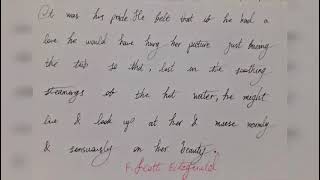 It was his pride. He felt that if he had a
love he would have hung her picture just facing
the tub so that, lost in the soothing
steamings of the hot water, he might
lie & look up at her & muse warmly
& sensuously on her beauty.
F. Scott Fitzgerald